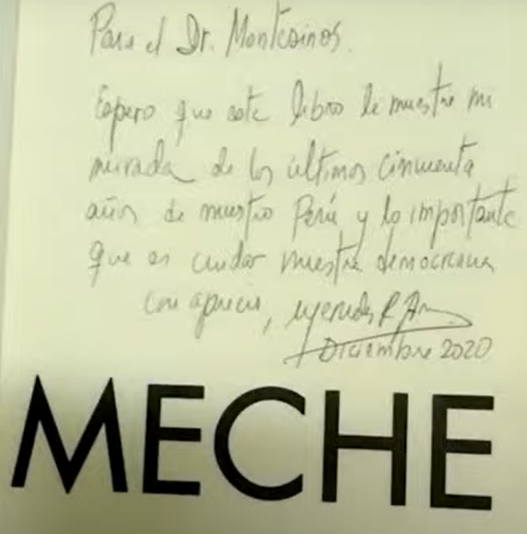 Para el Dr. Montesinos.
Espero que este libro le muestre mi
mirada de los últimos cincuenta
años de nuestro Perú y lo importante
que es cuidar nuestra democracia
con aprecio,
Diciembre 2020
MECHE